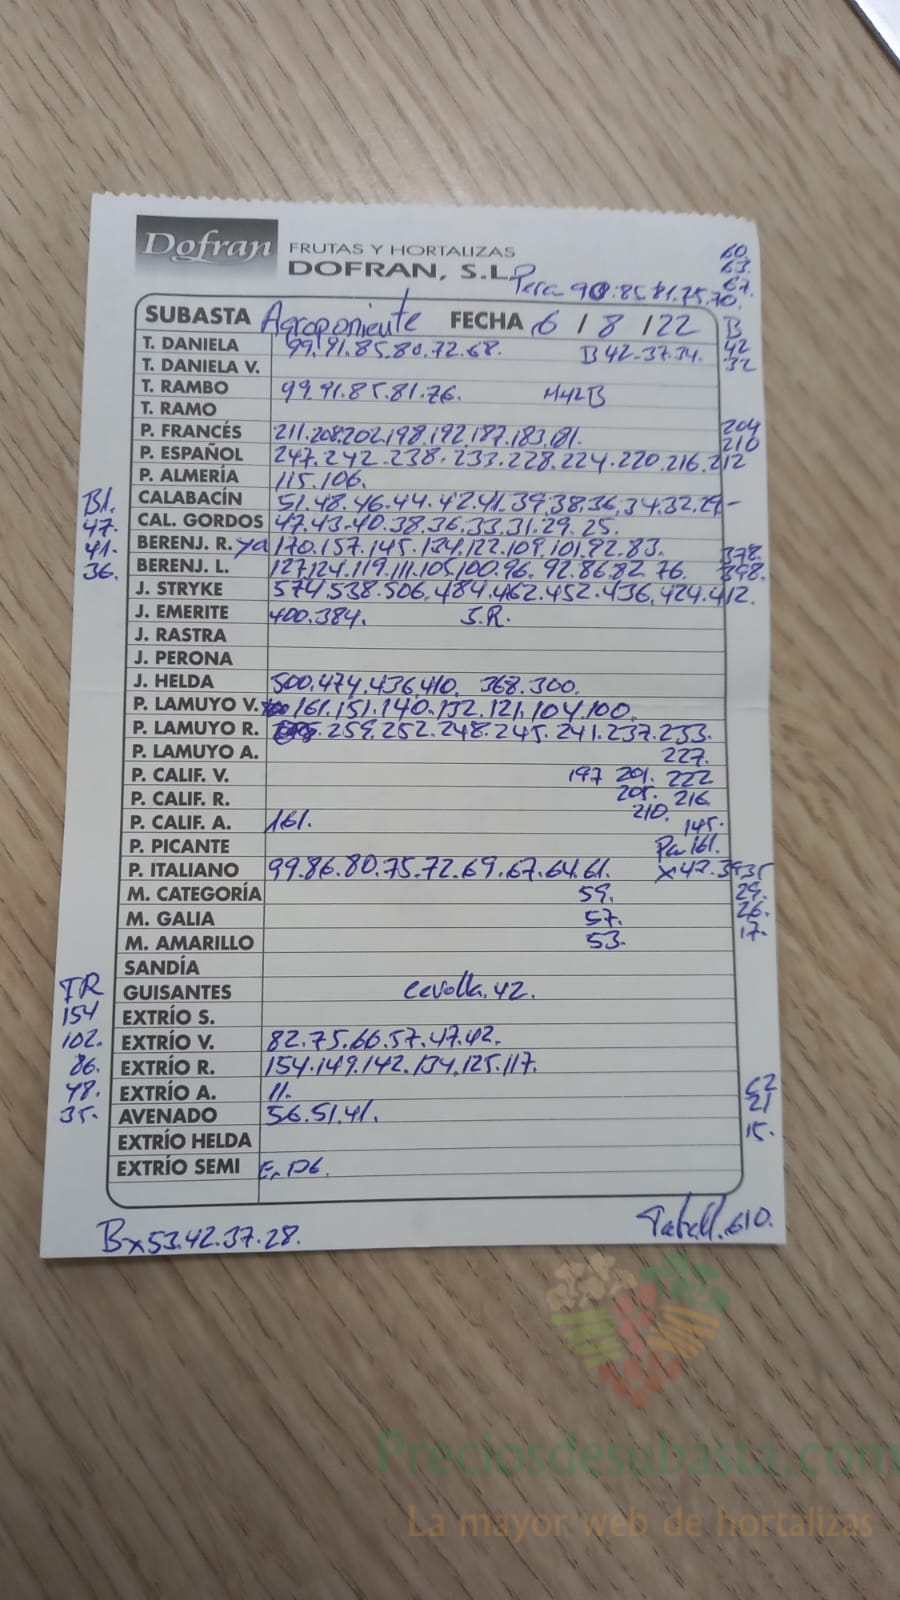 Dofran FRUTAS Y HORTALIZAS
DOFRAN, S.L.
Pera 90.85.81.75.70.
60.
63.
67.
SUBASTA Agroponiente FECHA 6 / 8 / 22 B
T. DANIELA 99.91.85.80.72.68. B 42.37.34. 42
T. DANIELA V. 32
T. RAMBO 99.91.85.81.76. M42B
T. RAMO
P. FRANCÉS 211.208.202.198.192.187.183.181. 204
P. ESPAÑOL 247.242.238.233.228.224.220.216.212 210
P. ALMERÍA 115.106.
CALABACÍN 51.48.46.44.42.41.39.38.36.34.32.29-
Bl.
47.
41.
36.
CAL. GORDOS 47.43.40.38.36.33.31.29.25.
BERENJ. R. ya 170.157.145.134.122.109.101.92.83. 378.
BERENJ. L. 127.124.119.111.105.100.96.92.86.82.76. 398.
J. STRYKE 574.538.506.484.462.452.436.424.412.
J. EMERITE 400.384. S.R.
J. RASTRA
J. PERONA
J. HELDA 500.474.436.410. 368.300.
P. LAMUYO V. 161.151.140.132.121.104.100.
P. LAMUYO R. 259.252.248.245.241.237.233.
P. LAMUYO A. 227.
P. CALIF. V. 197 201. 222
P. CALIF. R. 205. 216.
P. CALIF. A. 161. 210. 145.
P. PICANTE Pa 161.
P. ITALIANO 99.86.80.75.72.69.67.64.61. x42.39.35
M. CATEGORÍA 59. 29.
M. GALIA 57. 26.
M. AMARILLO 53. 17.
SANDÍA
TR
154
102.
86.
48.
35.
GUISANTES Cevolla.42.
EXTRÍO S.
EXTRÍO V. 82.75.66.57.47.42.
EXTRÍO R. 154.149.142.134.125.117.
EXTRÍO A. 11.
AVENADO 56.51.41. 21
EXTRÍO HELDA 15.
EXTRÍO SEMI
Bx53.42.37.28.
610.
Preciosdesubasta.com
La mayor web de hortalizas